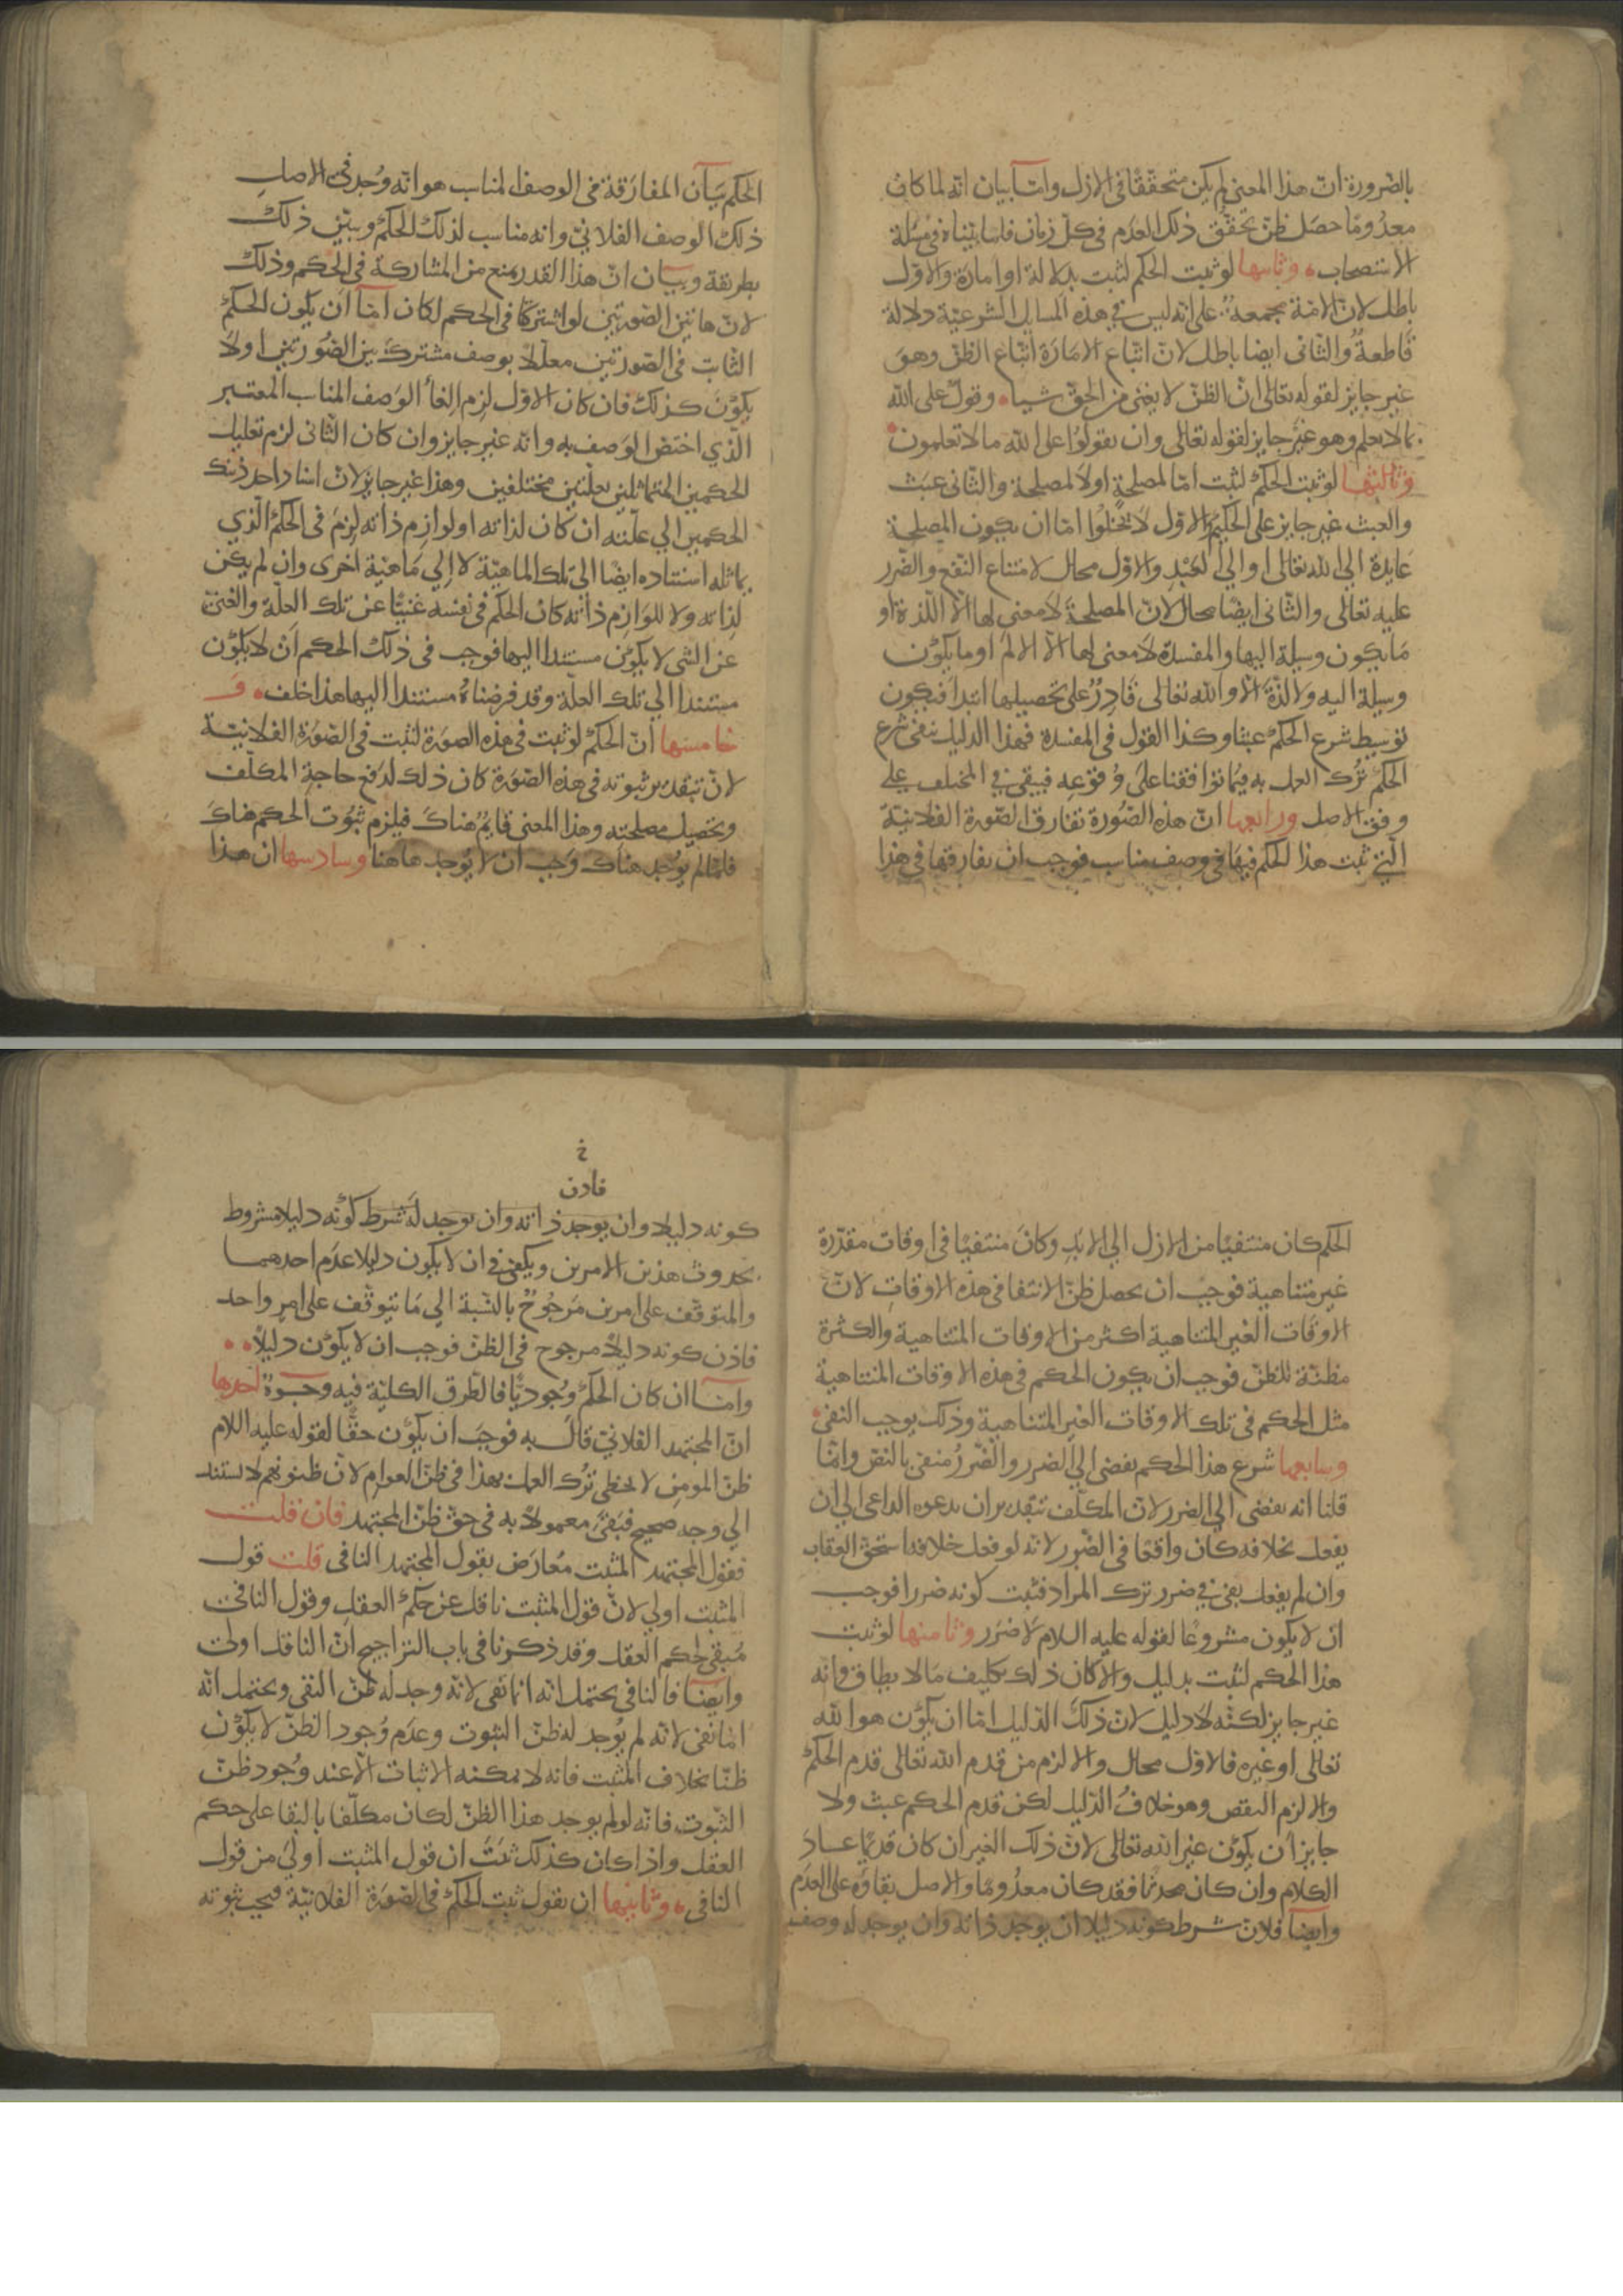 بالضرورة ان هذا المعنى لم يكن متحققا فى الازل واما بيان انه لما كان
معدوما حصل ظن تحقق ذلك العدم فى كل زمان فلما بيناه فى مسئلة
الاستصحاب وثانيها لو ثبت الحكم لثبت بدلالة او امارة والاول
باطل لان الامة مجمعة على انه ليس فى هذه المسايل الشرعية دلالة
قاطعة والثانى ايضا باطل لان اتباع الامارة اتباع الظن وهو
غير جايز لقوله تعالى ان الظن لا يغنى من الحق شيا وقول على الله
بما لا يعلم وهو غير جايز لقوله تعالى وان تقولوا على الله ما لا تعلمون
وثالثها لو ثبت الحكم لثبت اما لمصلحة او لا لمصلحة والثانى عبث
والعبث غير جايز على الحكيم والاول لا يخلوا اما ان يكون المصلحة
عايدة الى الله تعالى او الى العبد والاول محال لامتناع النفع والضرر
عليه تعالى والثانى ايضا محال لان المصلحة لا معنى لها الا اللذة او
ما يكون وسيلة اليها والمفسدة لا معنى لها الا الالم او ما يكون
وسيلة اليه ولا لذة الا والله تعالى قادر على تحصيلها ابتدا فيكون
توسيط شرع الحكم عبثا وكذا القول فى المفسدة فهذا الدليل ينفى شرع
الحكم ترك العمل به فيما توافقنا على وقوعه فيبقى فى المختلف على
وفق الاصل ورابعها ان هذه الصورة تفارق الصورة الفلانية
التى ثبت هذا الحكم فيها فى وصف مناسب فوجب ان يفارقها فى هذا
الحكم بيان المفارقة فى الوصف المناسب هو انه وجد فى الاصل
ذلك الوصف الفلانى وانه مناسب لذلك الحكم ويبين ذلك
بطريقة وبيان ان هذا القدر يمنع من المشاركة فى الحكم وذلك
لان هاتين الصورتين لو اشتركتا فى الحكم لكان اما ان يكون الحكم
الثابت فى الصورتين معللا بوصف مشترك بين الصورتين اولا
يكون كذلك فان كان الاول لزم الغأ الوصف المناسب المعتبر
الذي اختص الوصف به وانه غير جايز وان كان الثانى لزم تعليل
الحكمين المتماثلين بعلتين مختلفين وهذا غير جايز لان اسناد احد ذينك
الحكمين الي علته ان كان لذاته او لوازم ذاته لزم فى الحكم الذي
يماثله استناده ايضا الى تلك الماهية لا الي ماهية اخرى وان لم يكن
لذاته ولا للوازم ذاته كان الحكم فى نفسه غنيا عن تلك العلة والغنى
عن الشى لا يكون مستندا اليها فوجب فى ذلك الحكم ان لا يكون
مستندا الي تلك العلة وقد فرضناه مستندا اليها هذا خلف و
خامسها ان الحكم لو ثبت فى هذه الصورة لثبت فى الصورة الفلانية
لان بتقدير ثبوته فى هذه الصورة كان ذلك لدفع حاجة المكلف
وتحصيل مصلحته وهذا المعنى قايم هناك فيلزم ثبوت الحكم هناك
فلما لم يوجد هناك وجب ان لا يوجد هاهنا وسادسها ان هذا
الحكم كان منتفيا من الازل الي الابد وكان منتفيا فى اوقات مقدرة
غير متناهية فوجب ان يحصل ظن الانتفا فى هذه الاوقات لان
الاوقات الغير المتناهية اكثر من الاوقات المتناهية والكثرة
مظنة للظن فوجب ان يكون الحكم فى هذه الاوقات المتناهية
مثل الحكم فى تلك الاوقات الغير المتناهية وذلك يوجب النفى
وسابعها شرع هذا الحكم يفضى الي الضرر والضرر منفى بالنص وانما
قلنا انه يفضى الي الضرر لان المكلف بتقدير ان يدعوه الداعى الي ان
يفعل بخلافه كان واقعا فى الضرر لانه لو فعل خلافه استحق العقاب
وان لم يفعل بقى فى ضرر ترك المراد فثبت كونه ضررا فوجب
ان لا يكون مشروعا لقوله عليه السلام لا ضرر وثامنها لو ثبت
هذا الحكم لثبت بدليل والا كان ذلك تكليف مالا يطاق وانه
غير جايز لكنه لا دليل لان ذلك الدليل اما ان يكون هو الله
تعالى او غيره فالاول محال والا لزم من قدم الله تعالى قدم الحكم
والا لزم النقص وهو خلاف الدليل لكن قدم الحكم عبث ولا
جايز ان يكون غير الله تعالى لان ذلك الغير ان كان قديما عاد
الكلام وان كان محدثا فقد كان معدوما والاصل بقاؤه على العدم
وايضا فلان شرط كونه دليلا ان يوجد ذاته وان يوجد له وصف
خ
فاذن
كونه دليلا وان يوجد ذاته وان يوجد له شرط كونه دليلا مشروط
بحدوث هذين الامرين ويكفى فى ان لا يكون دليلا عدم احدهما
والمتوقف على امرين مرجوح بالنسبة الي ما يتوقف على امر واحد
فاذن كونه دليلا مرجوح فى الظن فوجب ان لا يكون دليلا
واما ان كان الحكم وجوديا فالطرق الكلية فيه وجوه احدها
ان المجتهد الفلانى قال به فوجب ان يكون حقا لقوله عليه السلام
ظن المومن لا يخطى ترك العمل بهذا فى ظن العوام لان ظنونهم لا تستند
الي وجه صحيح فبقى معمولا به فى حق ظن المجتهد فان قلت
فقول المجتهد المثبت معارض بقول المجتهد النافى قلت قول
المثبت اولي لان قول المثبت ناقل عن حكم العقل وقول النافى
مبقى لحكم العقل وقد ذكرنا فى باب التراجيح ان الناقل اولى
وايضا فالنافى يحتمل انه انما نفى لانه وجد له ظن النفى ويحتمل انه
انما نفى لانه لم يوجد له ظن الثبوت وعدم وجود الظن لا يكون
ظنا بخلاف المثبت فانه لا يمكنه الاثبات الا عند وجود ظن
الثبوت فانه لو لم يوجد هذا الظن لكان مكلفا بالبقا على حكم
العقل واذا كان كذلك ثبت ان قول المثبت اولى من قول
النافى وثانيها ان نقول ثبت الحكم فى الصورة الفلانية فيجب ثبوته